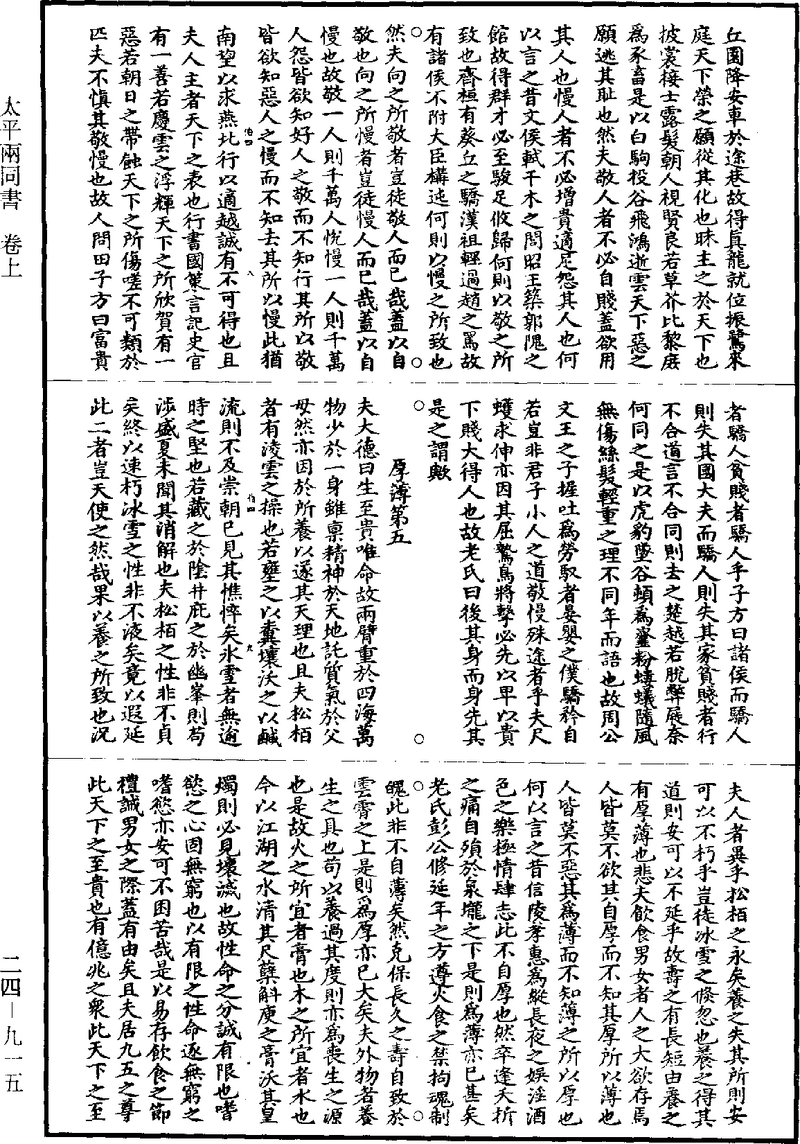 丘園降安車於途巷故得真龍就位振鷺來
庭天下榮之願從其化也昧主之於天下也
披裳接士露髮朝人視賢良若草芥比黎庶
為豕畜是以白駒投谷飛鴻逝雲天下惡之
願逃其恥也然夫敬人者不必自賤蓋欲用
其人也慢人者不必增貴適足怨其人也何
以言之昔文侯軾干木之閭昭王築郭隗之
館故得群才必至駿足攸歸何則以敬之所
致也齊桓有葵丘之驕漢祖輕過趙之罵故
有諸侯不附大臣構逆何則以慢之所致也
然夫向之所敬者豈徒敬人而已哉蓋以自
敬也向之所慢者豈徒慢人而已哉蓋以自
慢也故敬一人則千萬人悅慢一人則千萬
人怨皆欲知好人之敬而不知行其所以敬
皆欲知惡人之慢而不知去其所以慢此猶
南望以求燕北行以適越誠有不可得也且
伯四 八
夫人主者天下之表也行書國策言記史官
有一善若慶雲之浮輝天下之所欣賀有一
惡若朝日之帶蝕天下之所傷嗟不可類於
匹夫不慎其敬慢也故人問田子方曰富貴
者驕人貧賤者驕人乎子方曰諸侯而驕人
則失其國大夫而驕人則失其家貧賤者行
不合道言不合同則去之楚越若脫弊屣奈
何同之是以虎豹墜谷頓為虀粉螻蟻隨風
無傷絲髮輕重之理不同年而語也故周公
文王之子握吐為勞馭者晏嬰之僕驕矜自
若豈非君子小人之道敬慢殊途者乎夫尺
蠖求伸亦因其屈鷙鳥將擊必先以卑以貴
下賤大得人也故老氏曰後其身而身先其
是之謂歟
厚薄第五
夫大德曰生至貴唯命故兩臂重於四海萬
物少於一身雖稟精神於天地託質氣於父
母然亦因於所養以遂其天理也且夫松柏
者有淩雲之操也若壅之以糞壤沃之以鹹
伯四 九
流則不及崇朝已見其憔悴矣冰雪者無逾
時之堅也若藏之於陰井庇之於幽峯則苟
涉盛夏未聞其消解也夫松栢之性非不貞
矣終以速朽冰雪之性非不液矣竟以遐延
此二者豈天使之然哉果以養之所致也況
夫人者異乎松柏之永矣養之失其所則安
可以不朽乎豈徒冰雪之倏忽也養之得其
道則安可以不延乎故壽之有長短由養之
有厚薄也悲夫飲食男女者人之大欲存焉
人皆莫不欲其自厚而不知其厚所以薄也
人皆莫不惡其為薄而不知薄之所以厚也
何以言之昔信陵孝惠為縱長夜之娛淫酒
色之樂極情肆志此不自厚也然卒逢夭折
之痛自殞於泉壠之下是則為薄亦已甚矣
老氏彭公修延年之方遵火食之禁拘魂制
魄此非不自薄矣然克保長久之壽自致於
雲霄之上是則為厚亦已大矣夫外物者養
生之具也苟以養過其度則亦為喪生之源
也是故火之所宜者膏也木之所宜者水也
今以江湖之水清其尺蘖斛庾之膏沃其皇
燭則必見壞滅也故性命之分誠有限也嗜
慾之心固無窮也以有限之性命逐無窮之
嗜慾亦安可不困苦哉是以易存飲食之節
禮誡男女之際蓋有由矣且夫居九五之尊
此天下之至貴也有億兆之衆此天下之至
太平兩同書 卷上
二四－九一五